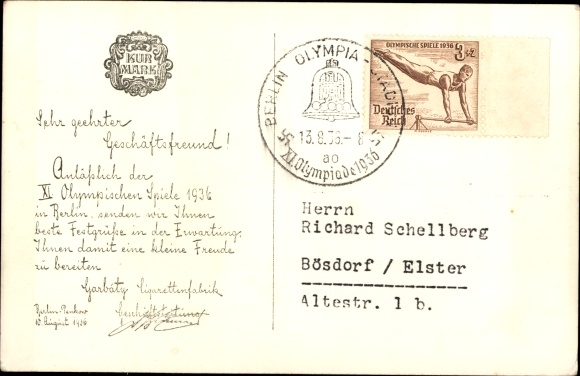 KUR
MARK
Sehr geehrter
Geschäftsfreund!
Anläßlich der
XI. Olympischen Spiele 1936
in Berlin, senden wir Ihnen
beste Festgrüße in der Erwartung,
Ihnen damit eine kleine Freude
zu bereiten
Garbáty Cigarettenfabrik
Berlin-Pankow
10. August 1936
Geschäftsleitung
BERLIN OLYMPIA-STADION
13.8.36.-8
ao
XI. Olympiade 1936
OLYMPISCHE SPIELE 1936
3+2
Deutsches
Reich
Herrn
Richard Schellberg
Bösdorf / Elster
Altestr. 1 b.